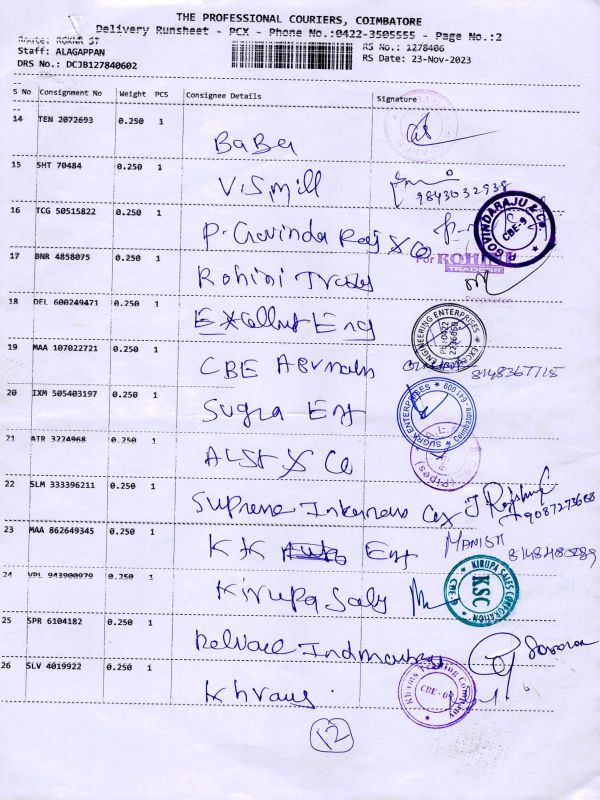 THE PROFESSIONAL COURIERS, COIMBATORE
Delivery Runsheet - PCX - Phone No.:0422-3505555 - Page No.:2
Route: ROKNR ST
RS No.: 1278406
Staff: ALAGAPPAN
RS Date: 23-Nov-2023
DRS No.: DCJB127840602
S No Consignment No Weight PCS Consignee Details Signature
14 TEN 2072693 0.250 1
Baba
15 SHT 70484 0.250 1
V.S.Mill
9843032938
16 TCG 50515822 0.250 1
P. Govinda Raj & Co
P.GOVINDARAJU & Co. CBE-9
17 BNR 4858075 0.250 1
Rohini Trades
For ROHINI
TRADERS
Proprietor
18 DEL 600249471 0.250 1
Excellent Eng
ENGINEERING ENTERPRISES
19 MAA 107022721 0.250 1
CBE
8148367715
20 IXM 505403197 0.250 1
Sugra Ent
SUGRA ENTERPRISES
21 ATR 3224968 0.250 1
& Co
22 SLM 333396211 0.250 1
Supreme
9087273688
23 MAA 862649345 0.250 1
KK Ent
MANISH
24 VPL 943900979 0.250 1
Kirupa Sales
KIRUPA SALES CORPORATION
KSC
25 SPR 6104182 0.250 1
26 SLV 4019922 0.250 1
Trading Company
CBE-09
12